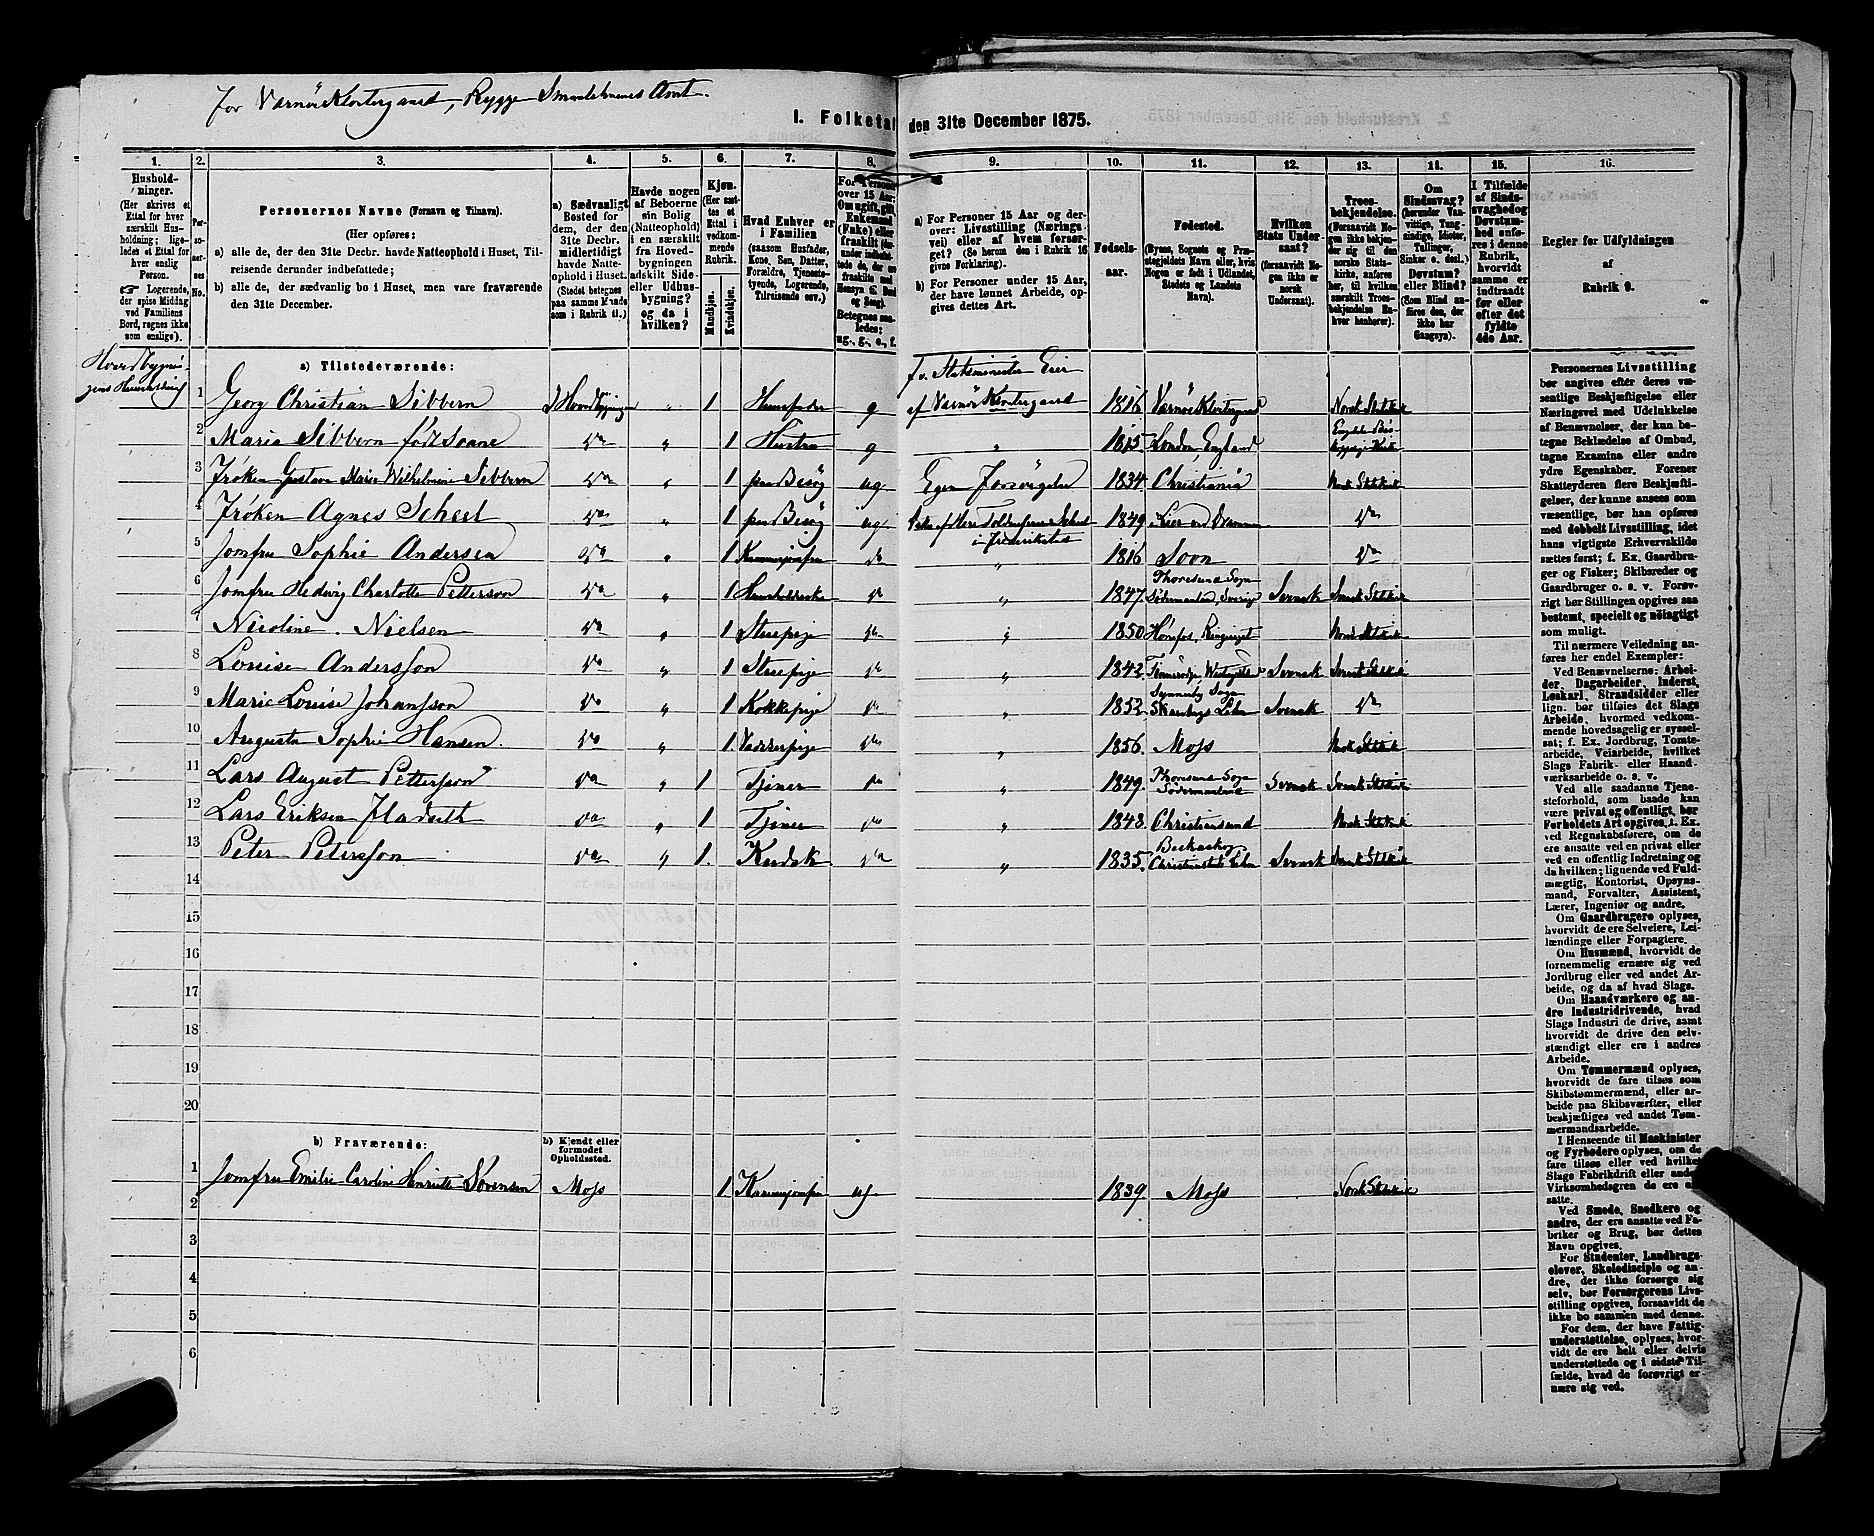 for Værnø Klostergaard, Rygge Smaalehnenes Amt.
I. Folketal den 31te December 1875.
1. 2. 3. 4. 5. 6. 7. 8. 9. 10. 11. 12. 13. 14. 15. 16.
Hushold-
ninger.
(Her skrives et
Ettal for hver
særskilt Hus-
holdning; lige-
ledes et Ettal for
hver enslig
Person.
Logerende,
der spise Middag
ved Familiens
Bord, regnes ikke
som enslige).
Per-
so-
ner-
nes
No.
Personernes Navne (Fornavn og Tilnavn).
(Her opføres:
a) alle de, der den 31te Decbr. havde Natteophold i Huset, Til-
reisende derunder indbefattede;
b) alle de, der sædvanlig bo i Huset, men vare fraværende
den 31te December.
a) Sædvanligt
Bosted for
dem, der den
31te Decbr.
midlertidigt
havde Natte-
ophold i Huset.
(Stedet betegnes
paa samme Maade
som i Rubrik 11.)
Havde nogen
af Beboerne
sin Bolig
(Natteophold)
i en særskilt
fra Hoved-
bygningen
adskilt Side-
eller Udhus-
bygning?
og da i
hvilken?
Kjøn.
(Her sæt-
tes et
Ettal i
vedkom-
mende
Rubrik.
Mandkjøn.
Kvindekjøn.
Hvad Enhver er
i Familien
(saasom Husfader,
Kone, Søn, Datter,
Forældre, Tjeneste-
tyende, Logerende,
Tilreisende osv.)
For Personer
over 15 Aar:
Om ugift, gift,
Enkemand
(Enke) eller
fraskilt
Betegnes saa-
ledes:
ug., g., e., f.
a) For Personer 15 Aar og der-
over: Livsstilling (Nærings-
vei) eller af hvem forsør-
get? (Se herom den i Rubrik 16
givne Forklaring).
b) For Personer under 15 Aar,
der have lønnet Arbeide, op-
gives dettes Art.
Fødsels-
aar.
Fødested.
(Byens, Sognets og Præ-
stegjeldets Navn eller, hvis
Nogen er født i Udlandet,
Stedets og Landets
Navn).
Hvilken
Stats Under-
saat?
(forsaavidt No-
gen ikke er
norsk
Undersaat).
Troes-
bekjendelse.
(Forsaavidt No-
gen ikke bekjen-
der sig til den
norske Stats-
kirke, anføres
her, til hvilken
særskilt Troes-
bekjendelse En-
hver henhører).
Om
Sindssvag?
(herunder Van-
vittige, Tung-
sindige, Idioter,
Tullinger,
Sinker o. desl.)
Døvstum?
eller Blind?
(Som Blind an-
føres den, der
ikke har
Gangsyn).
I Tilfælde
af Sinds-
svaghed og
Døvstum-
hed anfø-
res i denne
Rubrik,
hvorvidt
samme er
indtraadt
før eller
efter det
fyldte
4de Aar.
Regler for Udfyldningen
af
Rubrik 9.
a) Tilstedeværende:
fv. Statsminister Eier
1 Georg Christian Sibbern Hovedbygningen " 1 Huusfader g af Værnø Klostergaard 1816 Værnø Klostergaard Norsk Statskirke
2 Maria Sibbern født Soane do " 1 Hustru g " 1815 London, England
3 Frøken Gustava Maria Wilhelmine Sibbern do " 1 paa Besøg ug Egen Formue 1834 Christiania Norsk Statskirke
4 Frøken Agnes Scheel do " 1 paa Besøg ug 1849 Lier ved Drammen do
i Frederikstad
5 Jomfru Sophie Andersen do " 1 Kammerjomfru do " 1816 Soon do
6 Jomfru Hedvig Charlotte Petterson do " 1 Huusholderske do " 1847 Thoresund Sogn Södermanland, Sverige Svensk Svensk Statskirke
7 Nicoline Nielsen do " 1 Stuepige do " 1850 Hønefos, Ringerige Norsk Statskirke
8 Louise Andersson do " 1 Stuepige do " 1842 Svensk Svensk Statskirke
9 Marie Louise Johansson do " 1 Kokkepige do " 1852 Synnerby Sogn Skaraborgs Lehn Svensk do
10 Augusta Sophie Hansen do " 1 Vaskerpige do " 1856 Moss Norsk Statskirke
11 Lars August Pettersson do " 1 Tjener do " 1849 Thoresund Sogn Södermanland Svensk Svensk Statskirke
12 Lars Eriksen Hadseth do " 1 Tjener do " 1848 Christiansund Norsk Statskirke
13 Peter Petersson do " 1 Kudsk do " 1835 Beckaskog Christianstads Lehn Svensk Svensk Statskirke
14
15
16
17
18
19
20
b) Fraværende:
b) Kjendt eller
formodet
Opholdssted.
1 Jomfru Emilie Caroline Henriette Sørensen Moss 1 Kammerjomfru ug. 1839 Moss Norsk Statskirke
2
3
4
5
6
Personernes Livsstilling
bør angives efter deres væ-
sentlige Beskjæftigelse eller
Næringsvei med Udelukkelse
af Benævnelser, der kun be-
tegne Beklædelse af Ombud,
tagne Examina eller andre
ydre Egenskaber. Forener
Skatteyderen flere Beskjæfti-
gelser, der kunne ansees som
væsentlige, bør han opføres
med dobbelt Livsstilling, idet
hans vigtigste Erhvervskilde
sættes først; f. Ex. Gaardbru-
ger og Fisker; Skibsreder og
Gaardbruger o. s. v. Forøv-
rigt bør Stillingen opgives saa
bestemt, specielt og nöiagtigt
som muligt.
Til nærmere Veiledning an-
føres her endel Exempler:
Ved Benævnelserne: Arbei-
der, Dagarbeider, Inderst,
Løskarl, Strandsidder eller
lign. bør tilføies det Slags
Arbeide, hvormed vedkom-
mende hovedsagelig er syssel-
sat; f. Ex. Jordbrug, Tomte-
arbeide, Veiarbeide, hvilket
Slags Fabrik- eller Haand-
værksarbeide o. s. v.
Ved alle saadanne Tjene-
steforhold, som baade kan
være privat og offentligt, bør
Forholdets Art opgives, f. Ex.
ved Regnskabsførere, om de
ere ansatte ved en privat eller
ved en offentlig Indretning og
da hvilken; lignende ved Fuld-
mægtig, Kontorist, Opsyns-
mand, Forvalter, Assistent,
Lærer, Ingeniør og andre.
Om Gaardbrugere oplyses,
hvorvidt de ere Selveiere, Lei-
lændinge eller Forpagtere.
Om Husmænd, hvorvidt de
fornemmelig ernære sig ved
Jordbrug eller ved andet Ar-
beide, og da af hvad Slags.
Om Haandværkere og an-
dre Industridrivende, hvad
Slags Industri de drive, samt
hvorvidt de drive den selv-
stændigt eller ere i andres
Arbeide.
Om Tømmermænd oplyses,
hvorvidt de fare tilsøs som
Skibstømmermænd, eller ar-
beide paa Skibsværfter, eller
beskjæftiges ved andet Tøm-
mermandsarbeide.
I Henseende til Maskinister
og Fyrbødere oplyses, om de
fare tilsøs eller ved hvilket
Slags Fabrikdrift eller anden
Virksomhedsgren de ere an-
satte.
Ved Smede, Snedkere og
andre, der ere ansatte ved Fa-
briker og Brug, bør dettes
Navn opgives.
For Studenter, Landbrugs-
elever, Skoledisciple og an-
dre, der ikke forsørge sig
selv, bør Forsørgerens Livs-
stilling opgives, forsaavidt de
ikke bo sammen med denne.
For dem, der have Fattig-
understøttelse, oplyses, hvor-
vidt de ere helt eller delvis
understøttede og i sidste Til-
fælde, hvad de forøvrigt er-
nære sig ved.